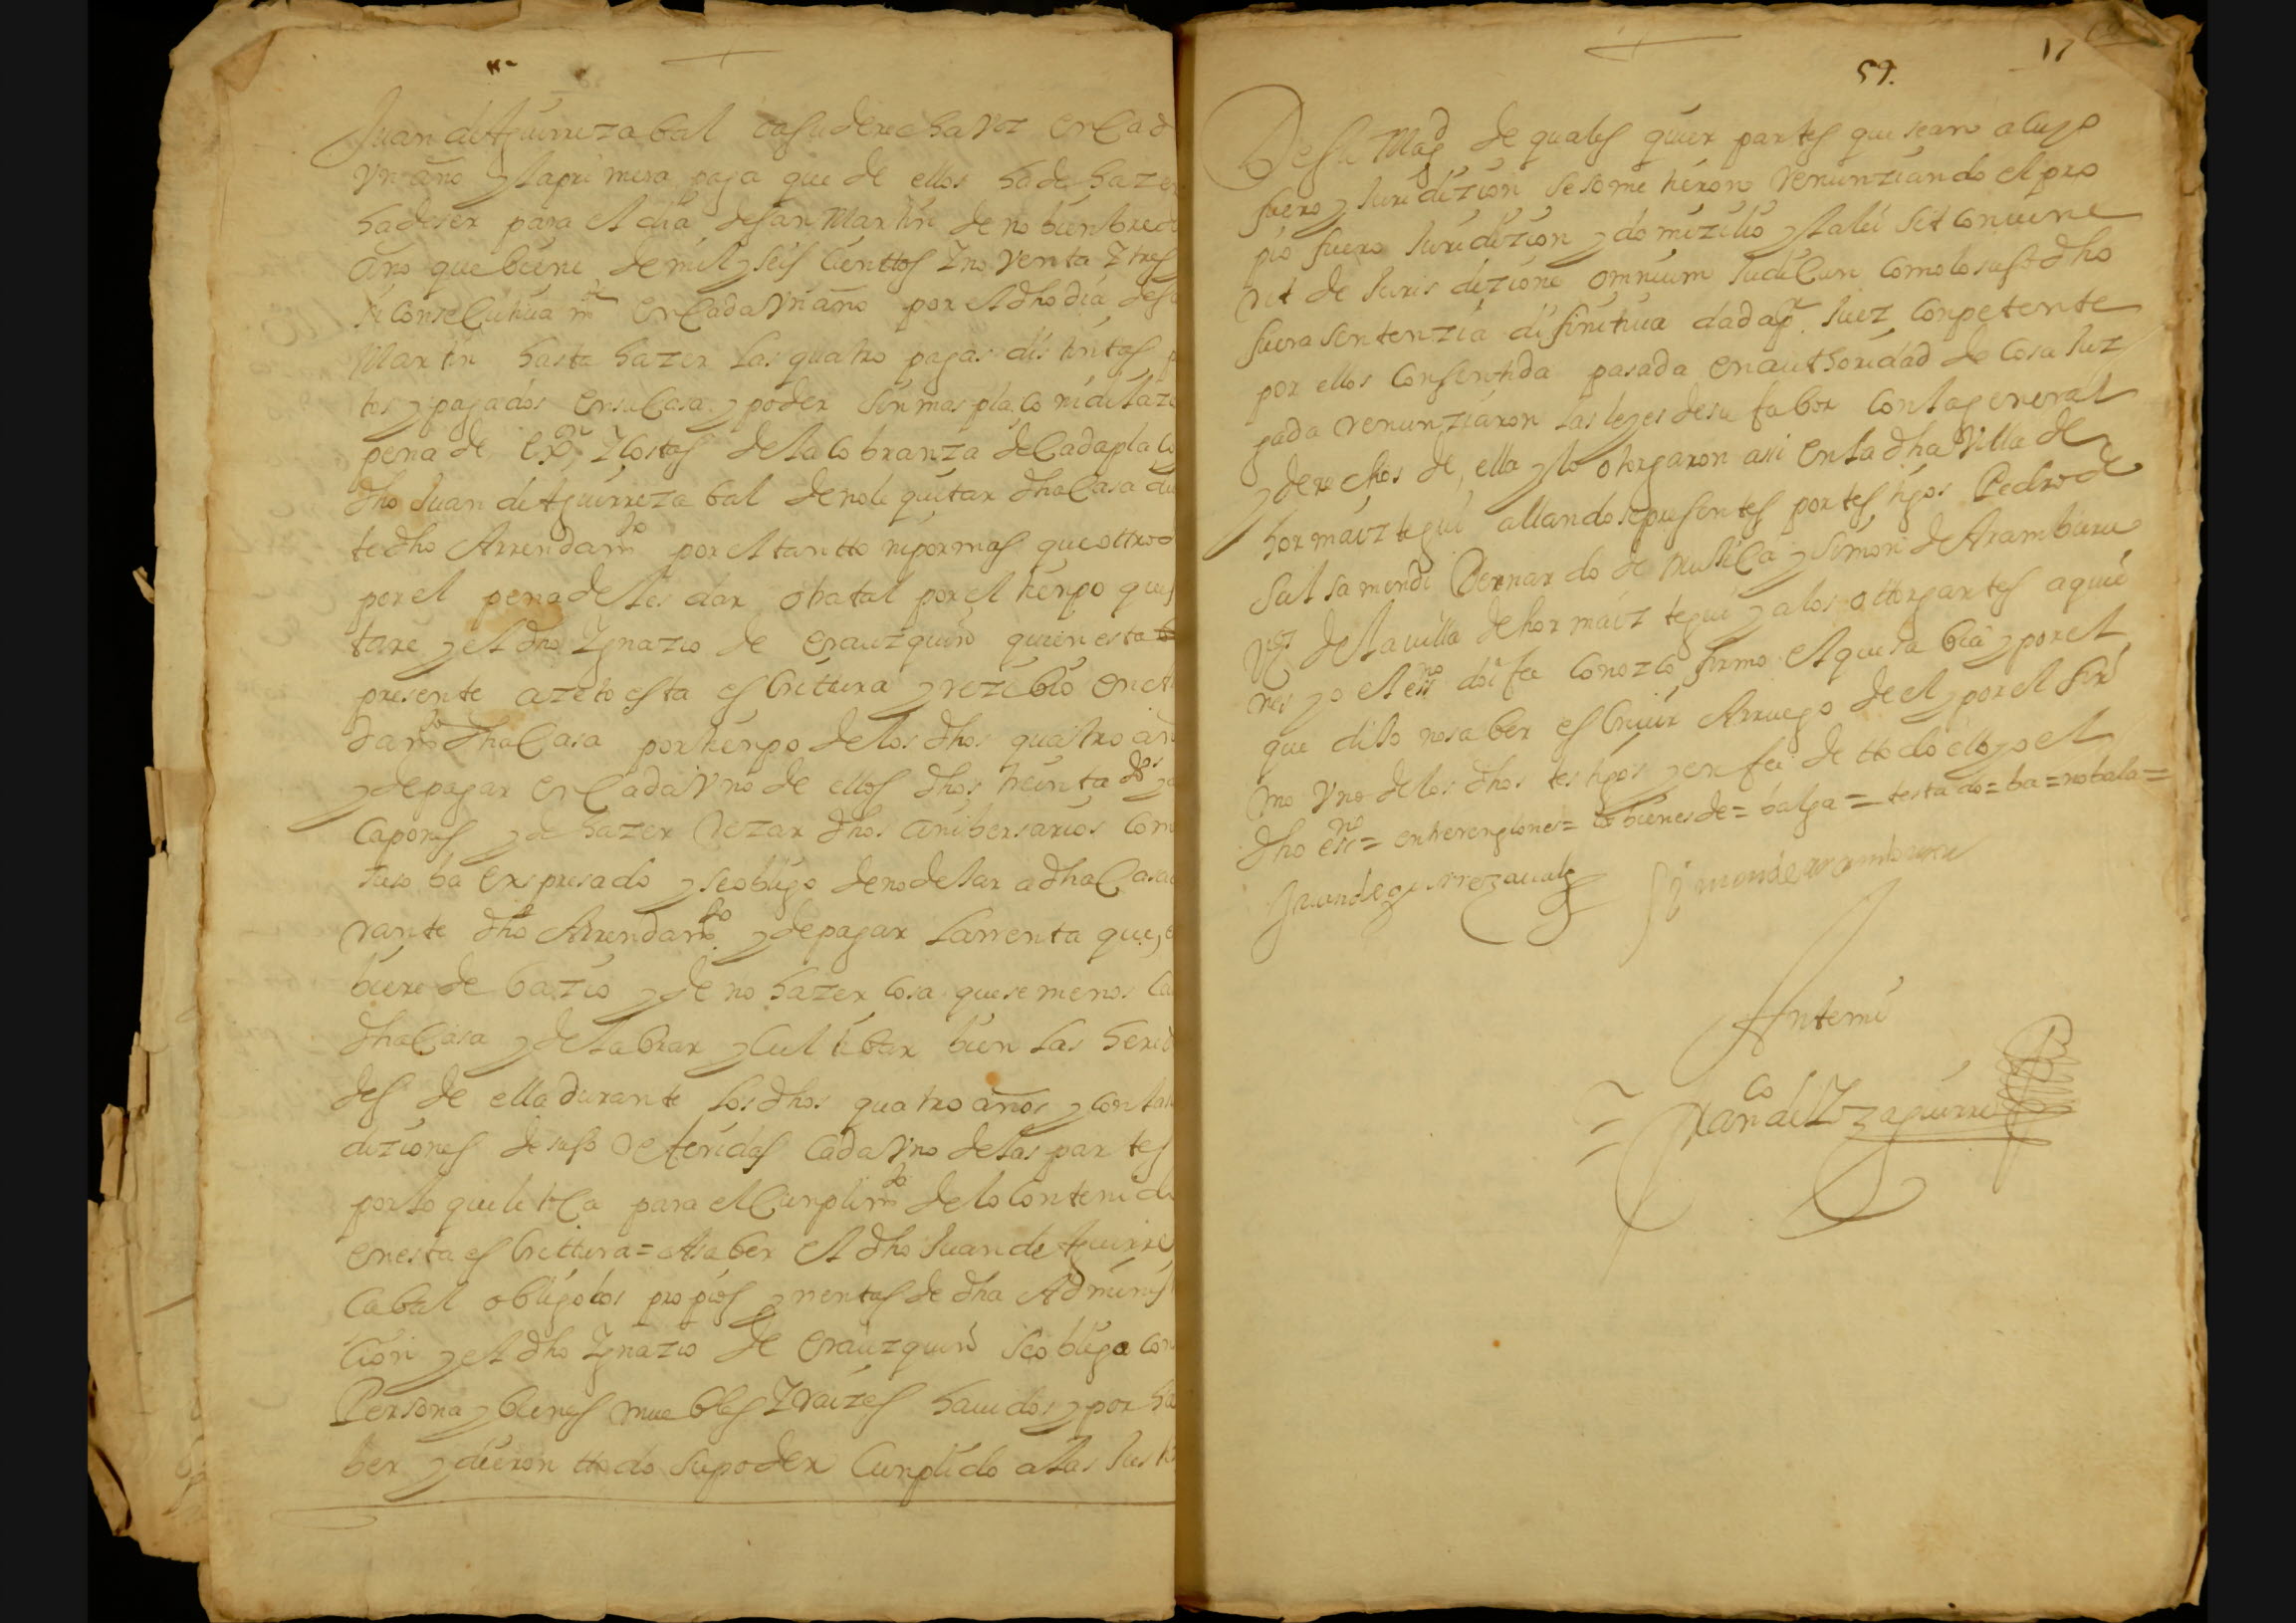 Juan de Aguirrezabal o a su derecha voz en cad
vn año y la primera paga que de ellos ha de hazer
ha de ser para el dia de san Martin de nobienbre de
año que biene de mil y seis cienttos y nobenta y tres
y consecutiuamte en cada vn año por el dho dia de s
Martin hasta hazer las quatro pagas distintas p
tos y pagados en su casa y poder sin mas plaço ni dilazi
pena de exon y costas de la cobranza de cada plaço
dho Juan de Aguirrezabal de no le quitar dha casa du
te dho Arrendamto por el tantto ni por mas que ottro
por el pena de les dar otra tal por el tienpo que f
tare y el dho Ygnazio de erauzquin quien esta
presente azeto esta escritura y rezibio en el
damto dha casa por tienpo de los dhos quatro añ
y de pagar en cada vno de ellos dhos treinta dos y
capones y de hazer rezar dhos anibersarios com
suso ba expresado y se obligo de no dejar a dha casa
rante dho Arrendamto y de pagar la renta que, e
biere de bazio y de no hazer cosa que se menos ca
dha casa y de labrar y cultibar bien las hered
des de ella durante los dhos quatro años y con la
diziones de suso referidas cada vno de las partes
por lo que le toca para el cunplimto de lo contenid
en esta escrittura = A saber el dho Juan de Aguirre
çabal obligo los propios y rentas de dha Adminis
cion y el dho Ygnazio de erauzquin se obligo con
Persona y bienes muebles y raizes hauidos y por ha
ber y dieron ttodo su poder cunplido a las Justi
59. 17
De su Magd de quales quier partes que sean a cuyo
fuero y Juridizion se sometieron renunziando el pro
pio fuero Juridizion y domizilio y la lei sit conuene
rit de Jurisdizione omnium Judicun como lo suso dho
fuera sentenzia difinitiua dada pr Juez conpetente
por ellos consentida pasada en authoridad de cosa Juz
gada renunziaron las leyes de su fabor con la general
y derechos de, ella y lo otorgaron asi en la dha Villa de
hormaiztegui allandose presentes por testigos Pedro de
Salsamendi Bernardo de Mujica y Simon de Aramburu
vezos de la villa de hormaiztegui y a los ottorgantes a quie
nes yo el essno doi fee conozco firmo el que sabia y por el
que dijo no saber escriuir A rruego de el y por el fir
mo vno de los dhos testigos y en fee de ttodo ello yo el
dho essno = entrerenglones = bienes de = balga = testado = ba = no bala =
Juan de aguirrezaual Simon de aramburu
Ante mi
Franco de Yzaguirre